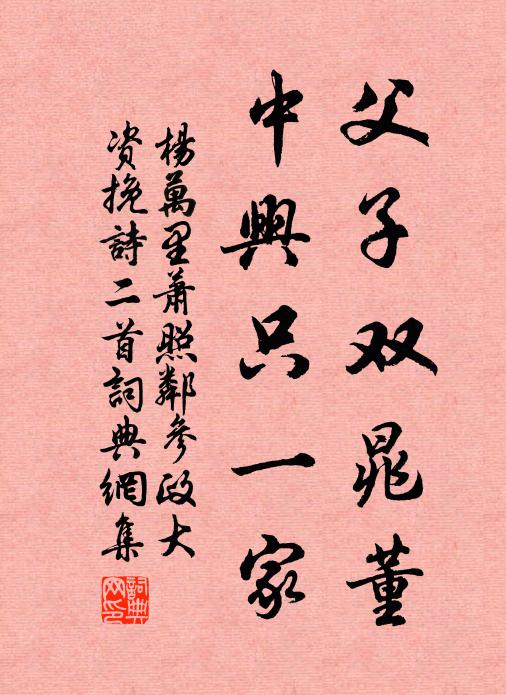 父子双晁董
中興只一家
楊萬里蕭照鄰參政大
资挽詩二首詞典網集
詞典网印